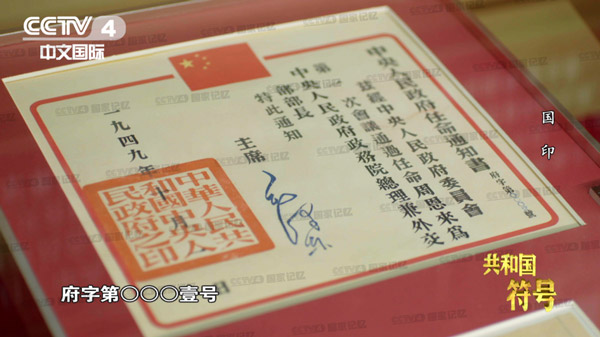 CCTV 4
中文国际
国印
中央人民政府任命通知書
府字第
號
茲經中央人民政府委員會
第一次會議通過任命周恩來為
中央人民政府政務院總理兼外交
部部長
特此通知
主席
一九四九年十月
中華人民共
和國中央人
民政府之印
府字第〇〇〇壹号
共和国
符号
CCTV4 国家记忆